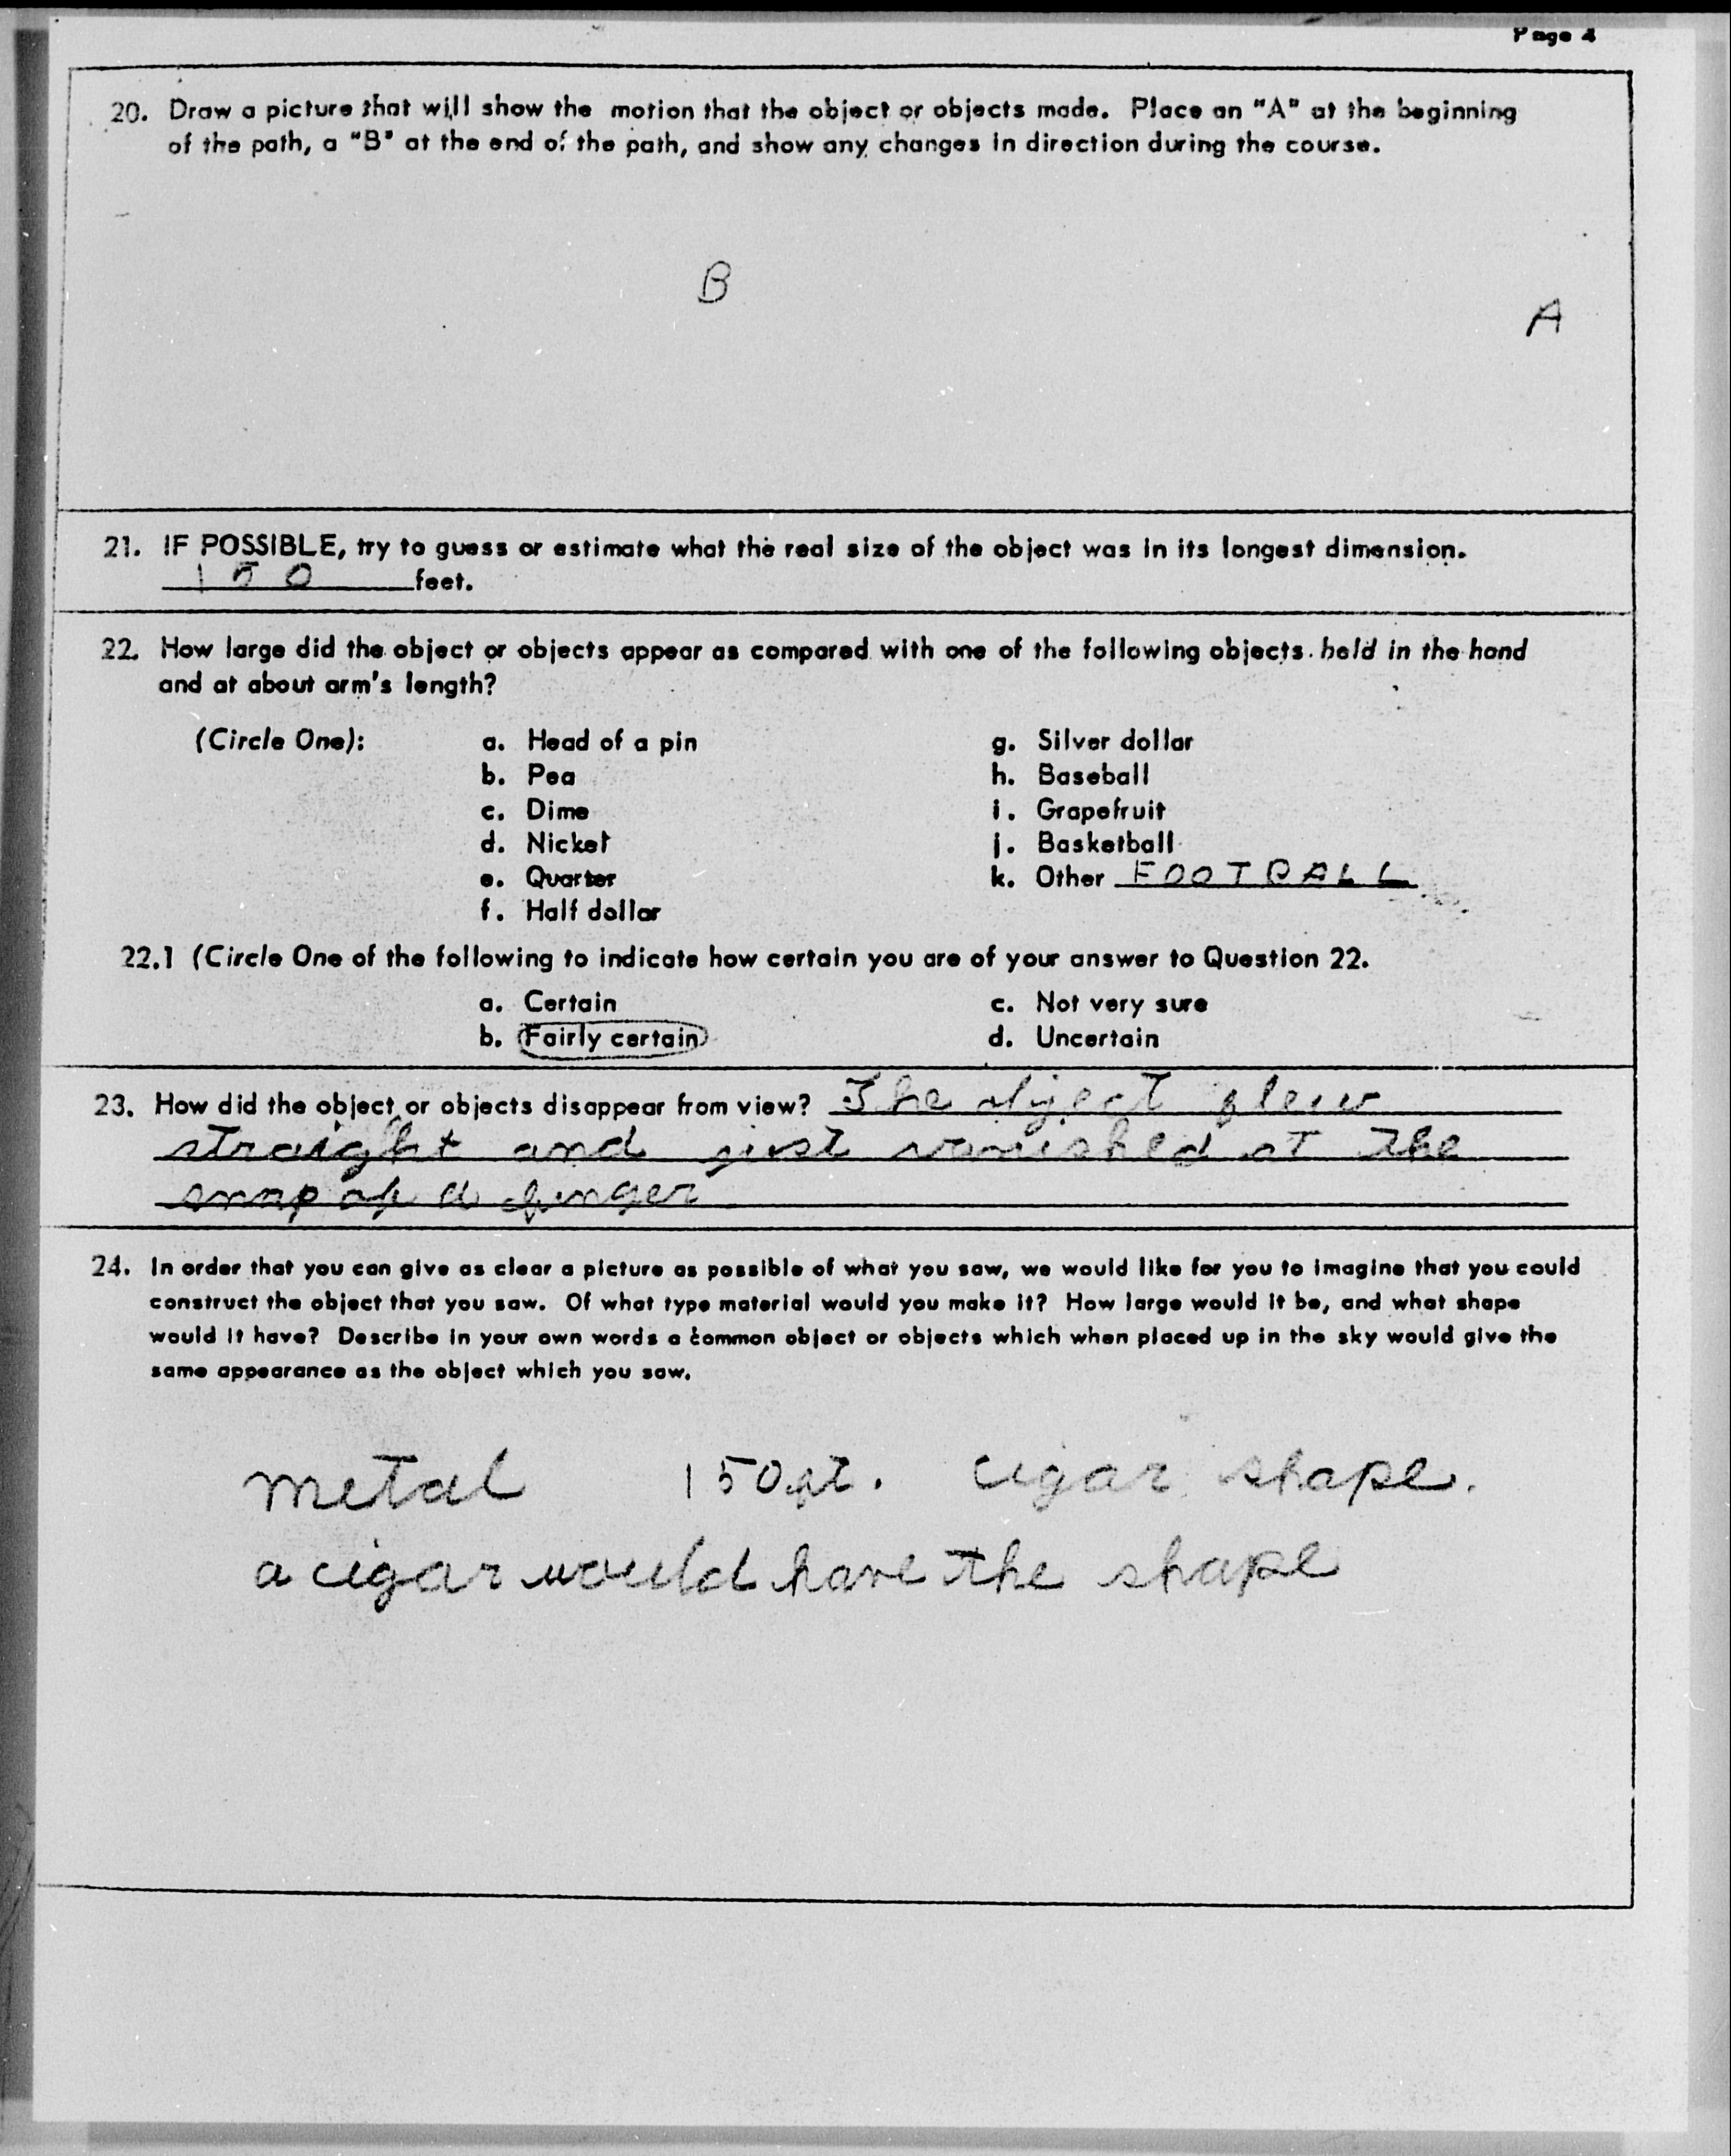 Page 4
20. Draw a picture that will show the motion that the object or objects made. Place an "A" at the beginning
of the path, a "B" at the end of the path, and show any changes in direction during the course.
B
A
21. IF POSSIBLE, try to guess or estimate what the real size of the object was in its longest dimension.
150 feet.
22. How large did the object or objects appear as compared with one of the following objects held in the hand
and at about arm's length?
(Circle One): a. Head of a pin g. Silver dollar
b. Pea h. Baseball
c. Dime i. Grapefruit
d. Nickel j. Basketball
e. Quarter k. Other FOOTBALL
f. Half dollar
22.1 (Circle One of the following to indicate how certain you are of your answer to Question 22.
a. Certain c. Not very sure
b. Fairly certain d. Uncertain
23. How did the object or objects disappear from view? The object flew
straight and just vanished at the
snap of a finger
24. In order that you can give as clear a picture as possible of what you saw, we would like for you to imagine that you could
construct the object that you saw. Of what type material would you make it? How large would it be, and what shape
would it have? Describe in your own words a common object or objects which when placed up in the sky would give the
same appearance as the object which you saw.
metal 150 ft. cigar shape.
a cigar would have the shape